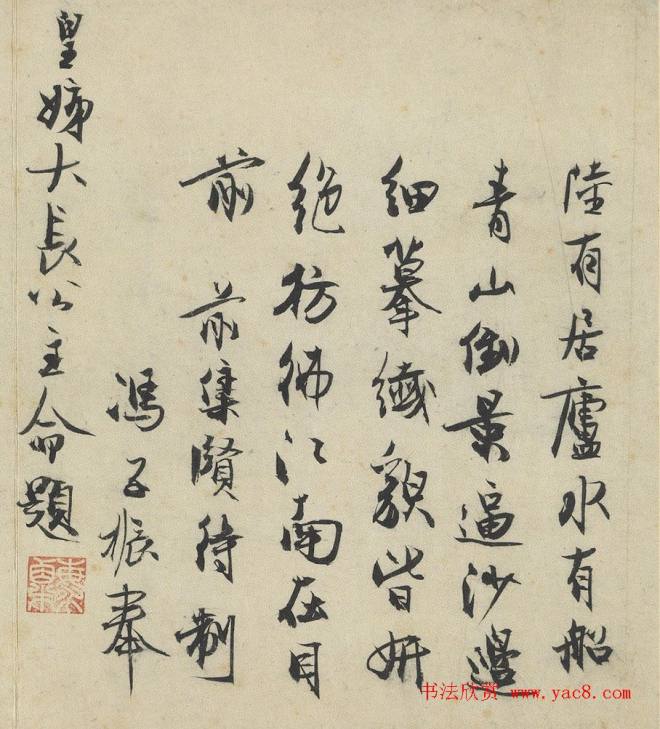 陸有居廬水有船
青山倒景逼沙邊
細摹纖貌皆妍
絶彷彿江南在目
前 前集賢待制
馮子振奉
皇姊大長公主命題
书法欣赏 www.yac8.com